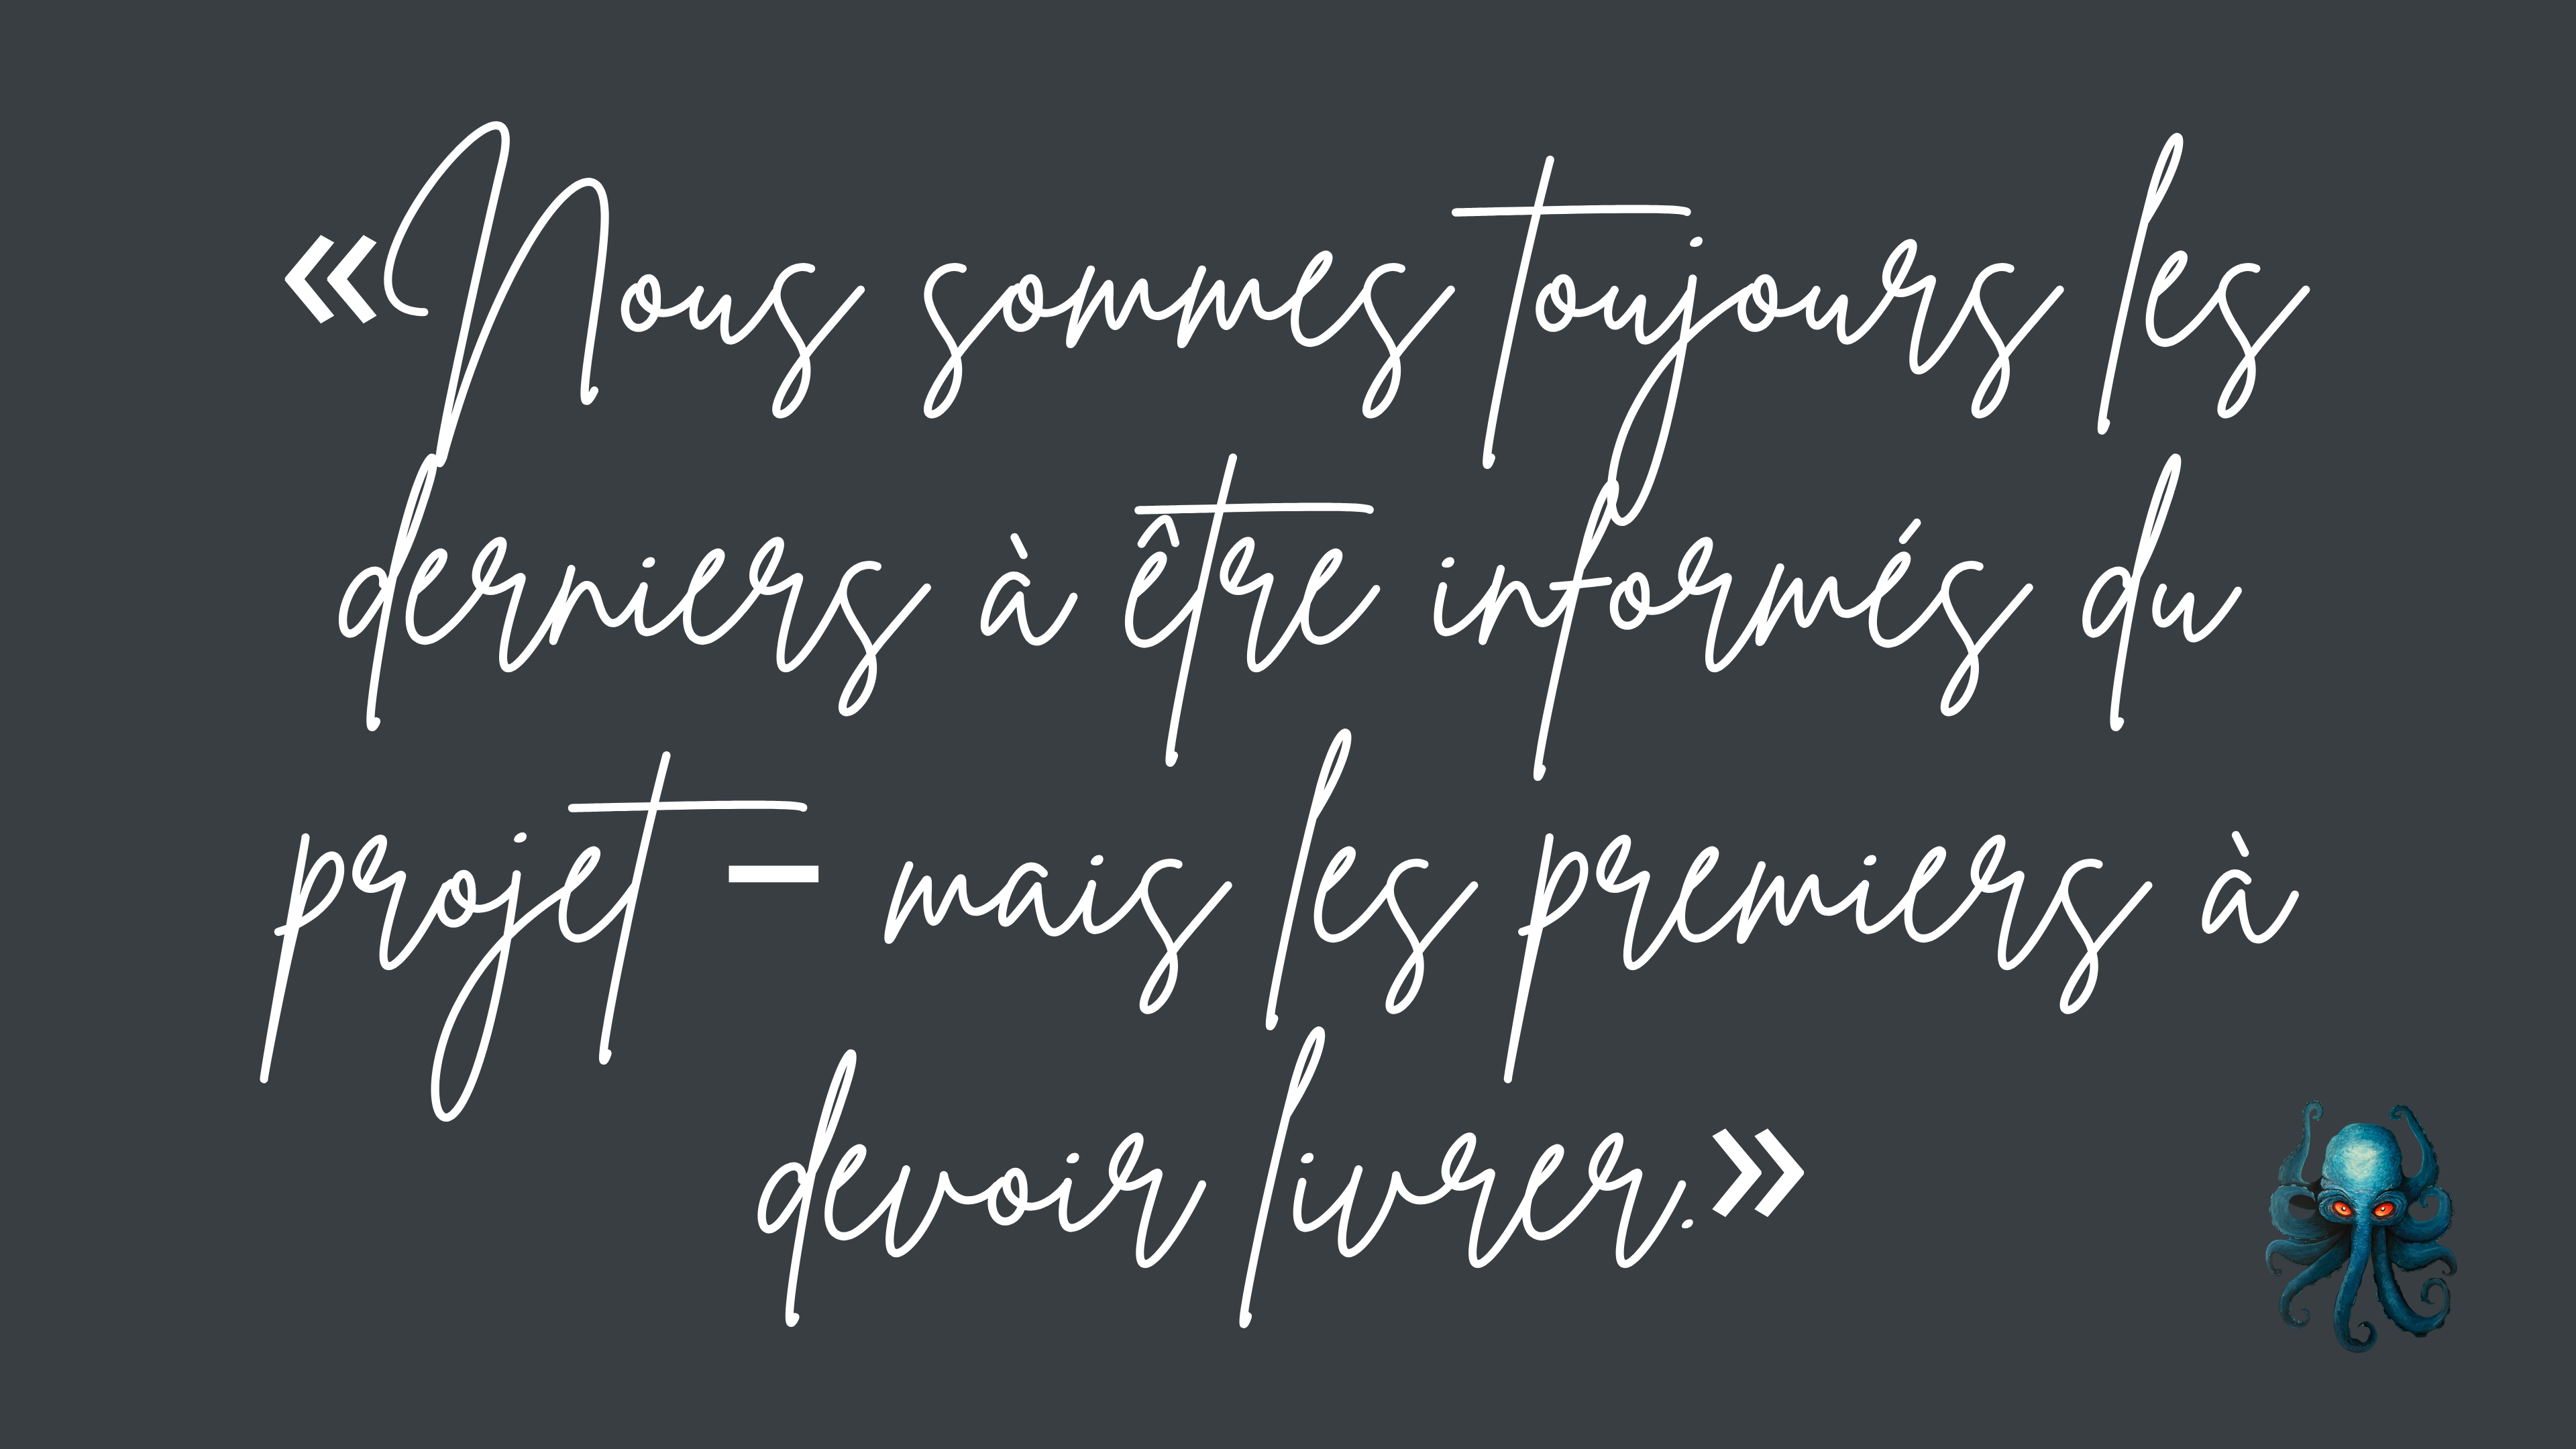 «Nous sommes toujours les
derniers à être informés du
projet – mais les premiers à
devoir livrer.»